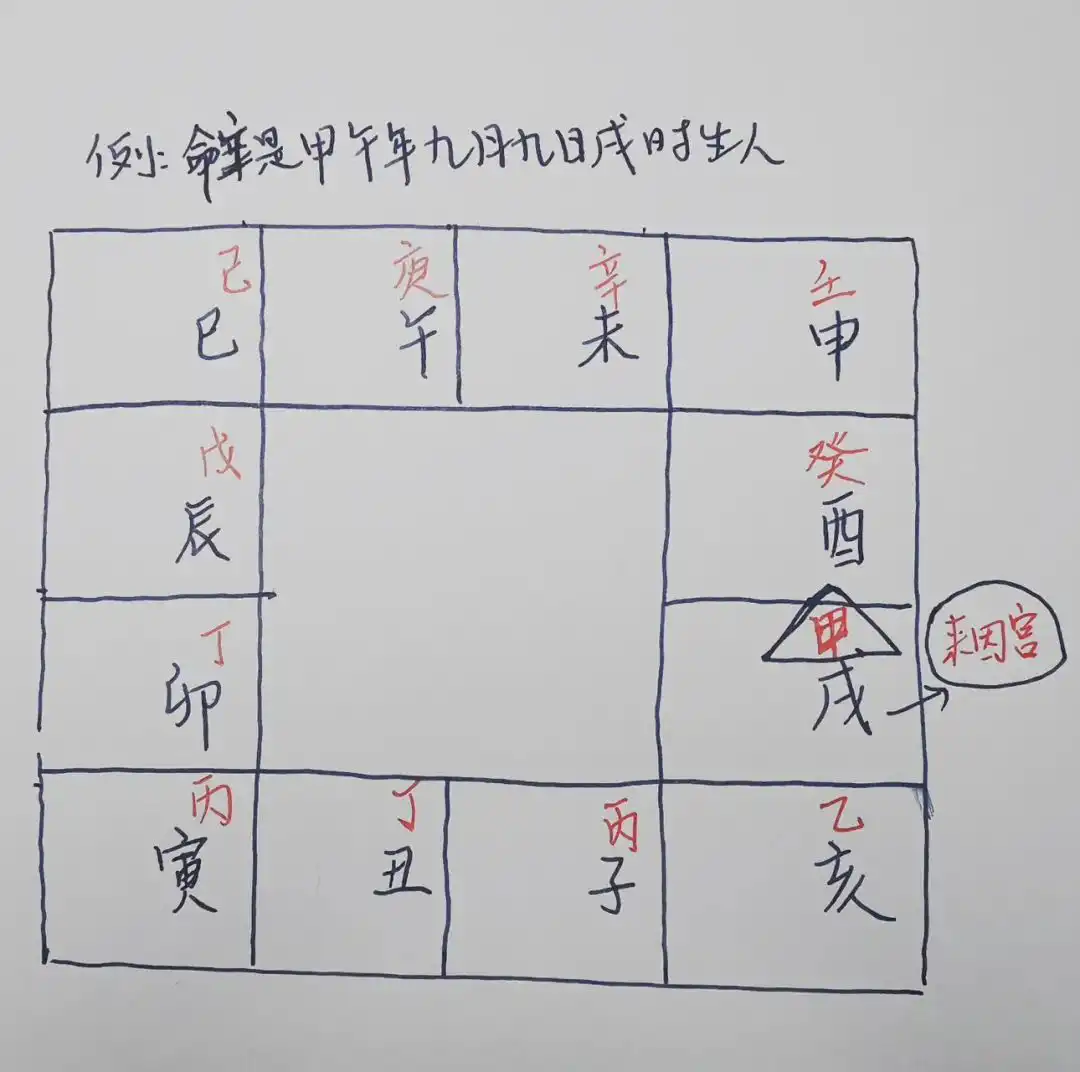 例:命宰是甲午年九月九日戌时生人
己
巳
庚
午
辛
未
壬
申
戊
辰
癸
酉
丁
卯
甲
戌
来因宫
丙
寅
丁
丑
丙
子
乙
亥